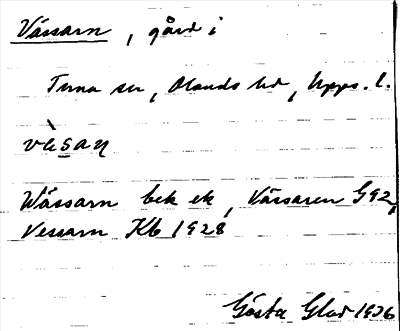 Vässarn, gård i
Tuna sn, Olands hd, Upps. l.
vèsaɳ
Wässarn bek ek, Vässaren G92,
Vessarn Kb 1928
Gösta Glad 1936